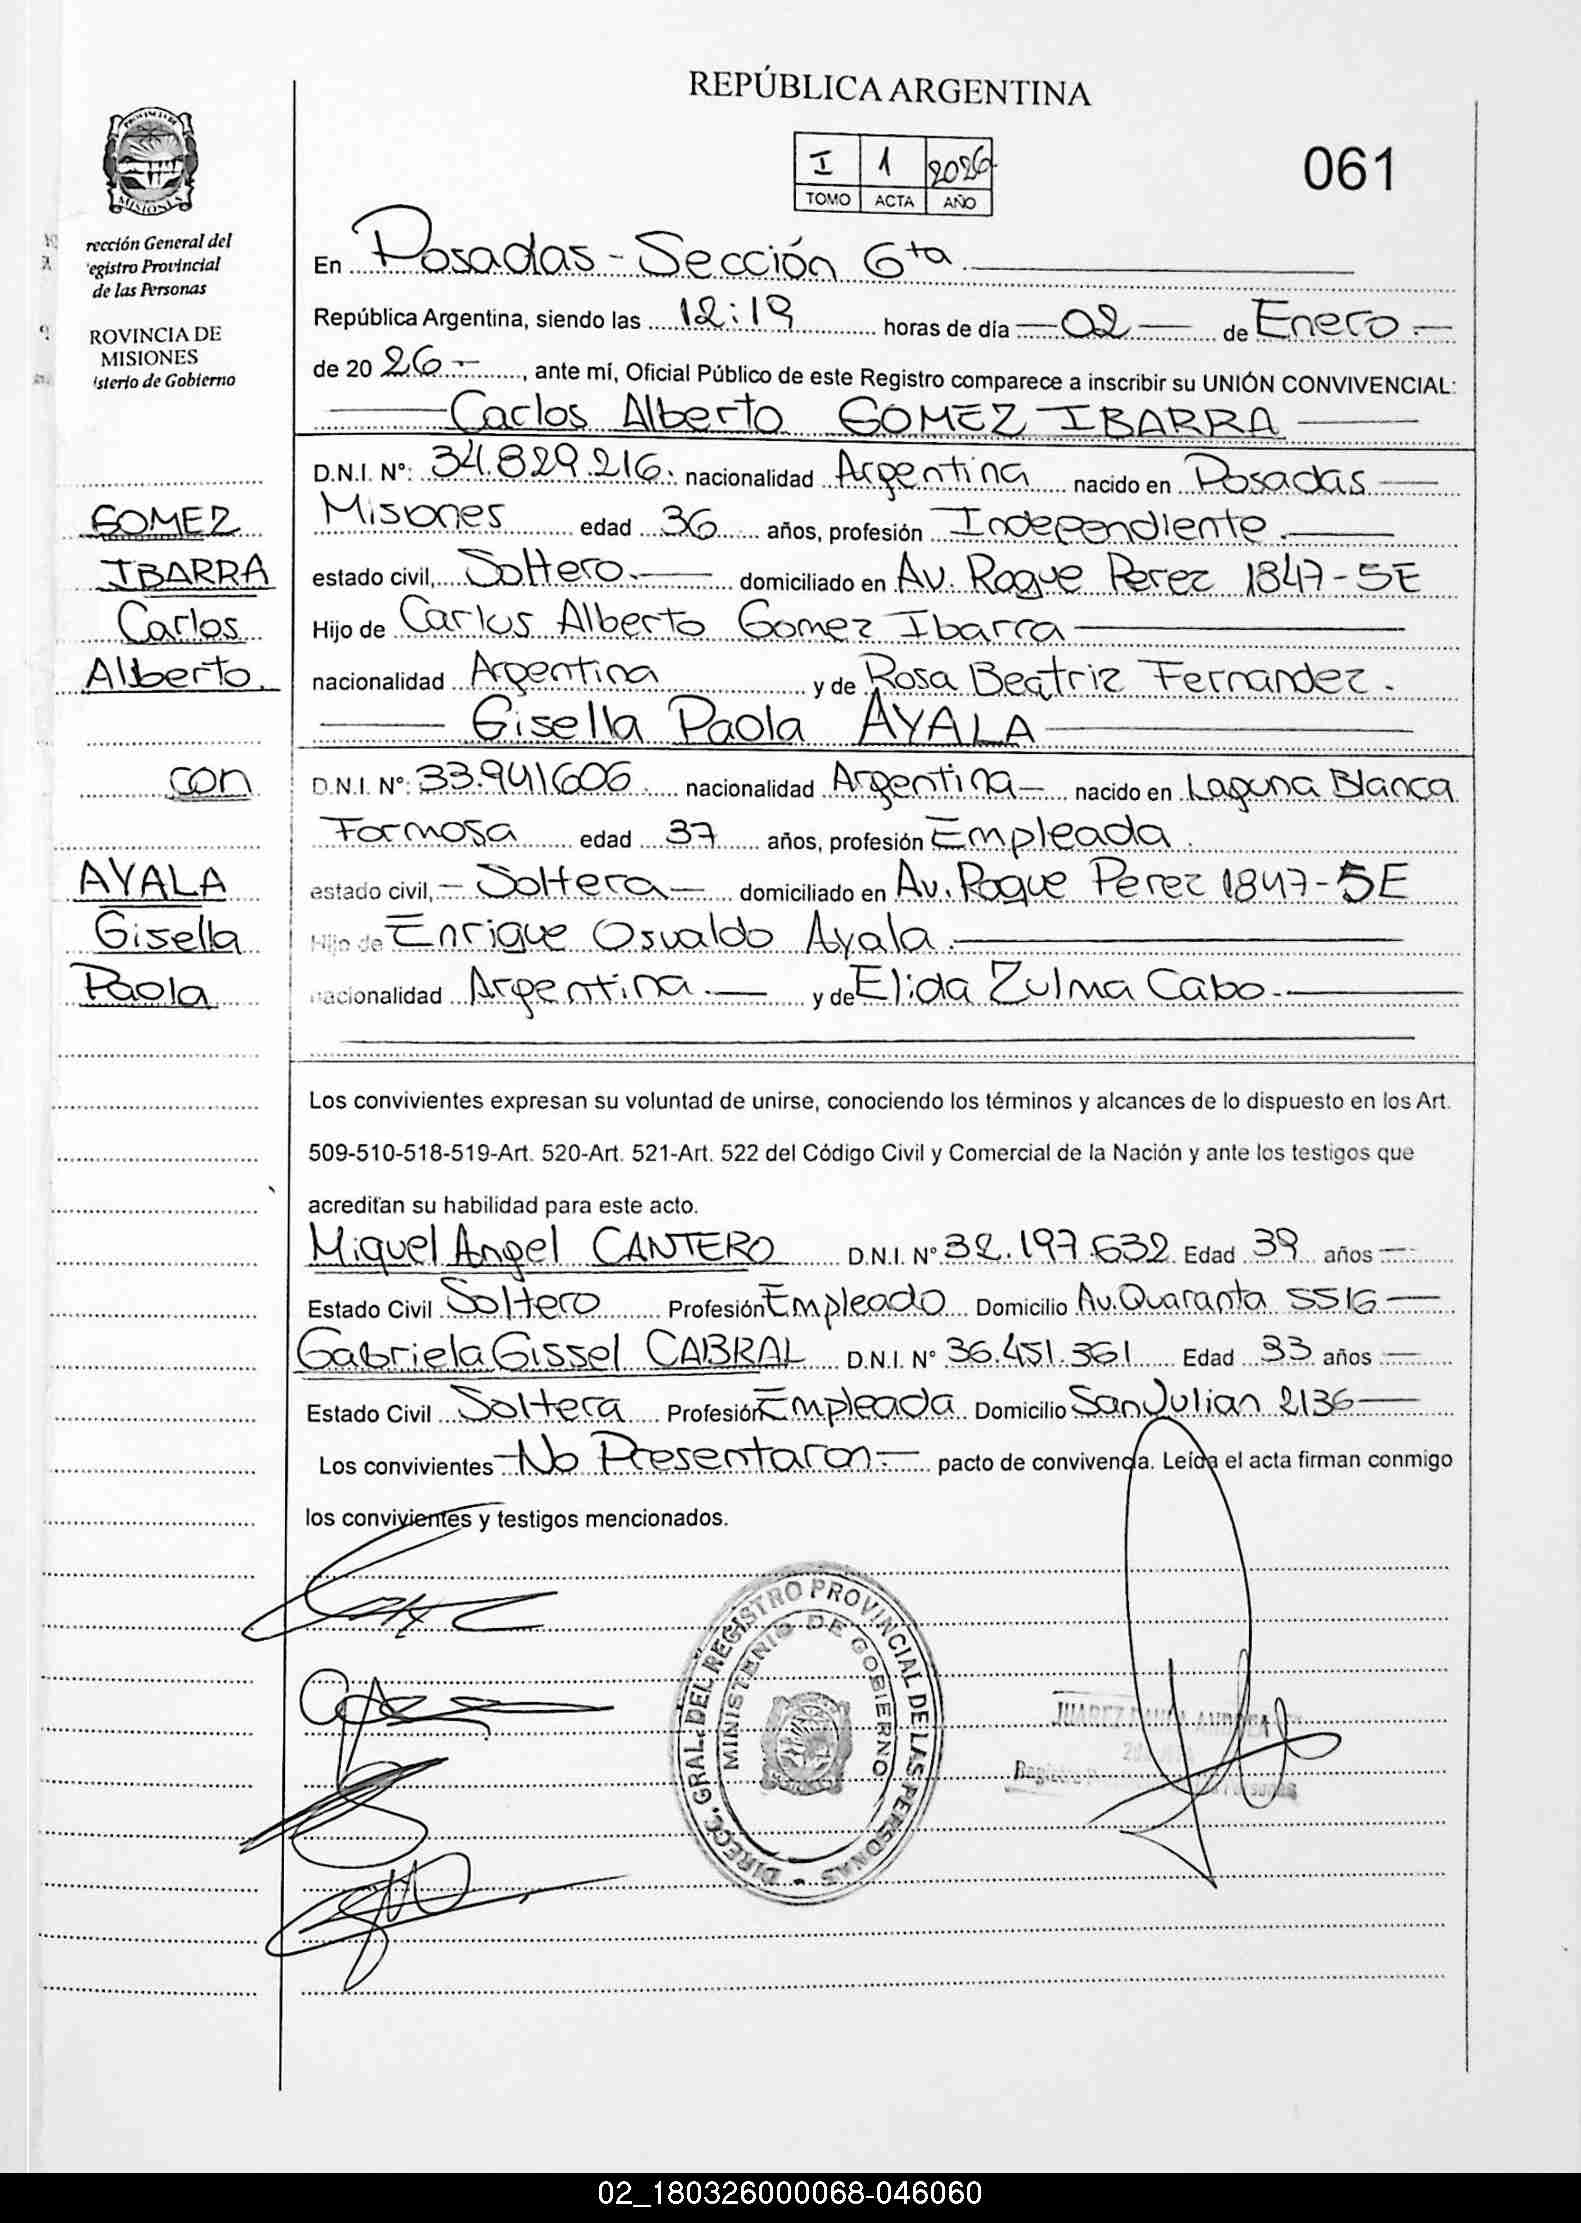 REPÚBLICA ARGENTINA
I 1 2026
TOMO ACTA AÑO
061
PROVINCIA DE
MISIONES
rección General del
egistro Provincial
de las Personas
ROVINCIA DE
MISIONES
isterio de Gobierno
En Posadas - Sección 6ta
República Argentina, siendo las 12:19 horas de día 02 de Enero
de 2026, ante mí, Oficial Público de este Registro comparece a inscribir su UNIÓN CONVIVENCIAL:
Carlos Alberto GOMEZ IBARRA
D.N.I. Nº: 34.829.216. nacionalidad Argentina nacido en Posadas
Misiones edad 36 años, profesión Independiente
estado civil, Soltero. domiciliado en Av. Roque Perez 1847-5E
Hijo de Carlos Alberto Gomez Ibarra
nacionalidad Argentina y de Rosa Beatriz Fernandez.
Gisella Paola AYALA
D.N.I. Nº: 33.941606 nacionalidad Argentina nacido en Laguna Blanca
Formosa edad 37 años, profesión Empleada.
estado civil, Soltera domiciliado en Av. Roque Perez 1847-5E
Hijo de Enrique Osvaldo Ayala
nacionalidad Argentina. y de Elida Zulma Cabo.
GOMEZ
IBARRA
Carlos
Alberto.
con
AYALA
Gisella
Paola
Los convivientes expresan su voluntad de unirse, conociendo los términos y alcances de lo dispuesto en los Art.
509-510-518-519-Art. 520-Art. 521-Art. 522 del Código Civil y Comercial de la Nación y ante los testigos que
acreditan su habilidad para este acto.
Miguel Angel CANTERO D.N.I. Nº 32.197.632 Edad 39 años
Estado Civil Soltero Profesión Empleado Domicilio Av. Quaranta 5516
Gabriela Gissel CABRAL D.N.I. Nº 36.451.361 Edad 33 años
Estado Civil Soltera Profesión Empleada Domicilio San Julian 2136
Los convivientes No Presentaron pacto de convivencia. Leída el acta firman conmigo
los convivientes y testigos mencionados.
DIRECC. GRAL. DEL REGISTRO PROVINCIAL DE LAS PERSONAS
MINISTERIO DE GOBIERNO
JUAREZ
02_180326000068-046060